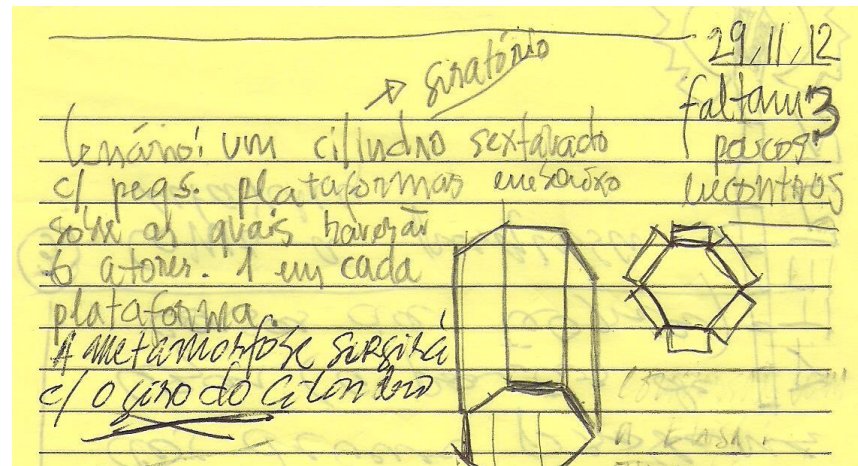 29.11.12
faltam 3
poucos
encontros
→ giratório
Cenário: um cilindro sextavado
c/ peqs. plataformas embaixo
sobre as quais haverão
6 atores. 1 em cada
plataforma.
A metamorfose surgirá
c/ o giro do cilindro